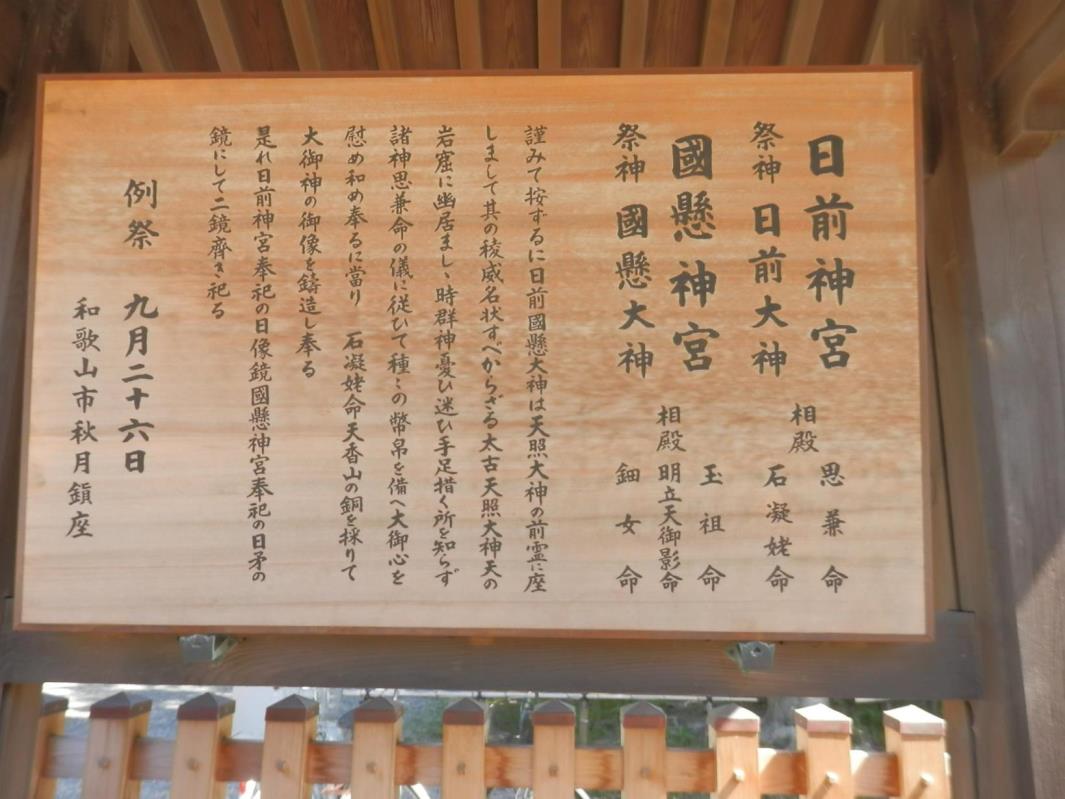 日前神宮
相殿
思兼命
祭神 日前大神
石凝姥命
國懸神宮
相殿
玉祖命
明立天御影命
祭神 國懸大神
鈿女命
謹みて按ずるに日前國懸大神は天照大神の前霊に座
しまして其の稜威名状すべからざる太古天照大神天の
岩窟に幽居まし、時群神憂ひ迷ひ手足措く所を知らず
諸神思兼命の議に従ひて種々の幣帛を備へ大御心を
慰め和め奉るに當り 石凝姥命天香山の銅を採りて
大御神の御像を鋳造し奉る
是れ日前神宮奉祀の日像鏡國懸神宮奉祀の日矛の
鏡にして二鏡齊き祀る
例祭 九月二十六日
和歌山市秋月鎮座